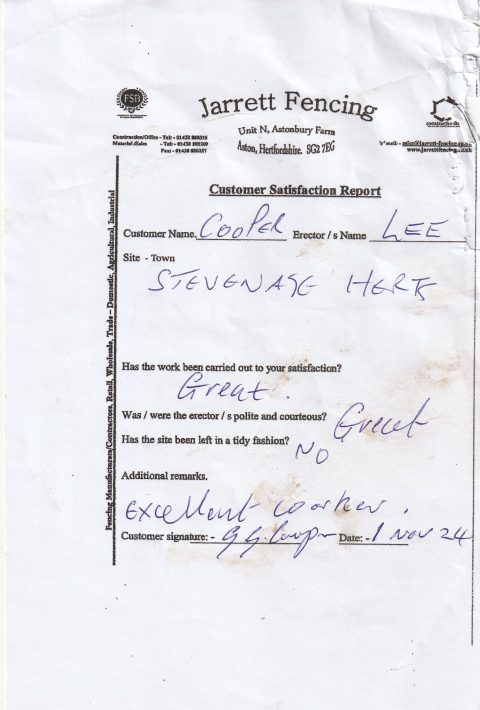 FSB
Jarrett Fencing
Unit N, Astonbury Farm
Aston, Hertfordshire. SG2 7EG
Construction/Office - Tel: - 01438
Material /Sales - Tel: - 01438
Fax: - 01438
constructionline
www.jarrettfencing.co.uk
Customer Satisfaction Report
Customer Name. COOPER Erector / s Name LEE
Site - Town
STEVENAGE HERTS
Has the work been carried out to your satisfaction?
Great.
Was / were the erector / s polite and courteous? Great
Has the site been left in a tidy fashion? NO
Additional remarks.
Excellent worker.
Customer signature: - G G Cooper Date: - 1 Nov 24
Fencing Manufacturers/Contractors, Retail, Wholesale, Trade – Domestic, Agricultural, Industrial